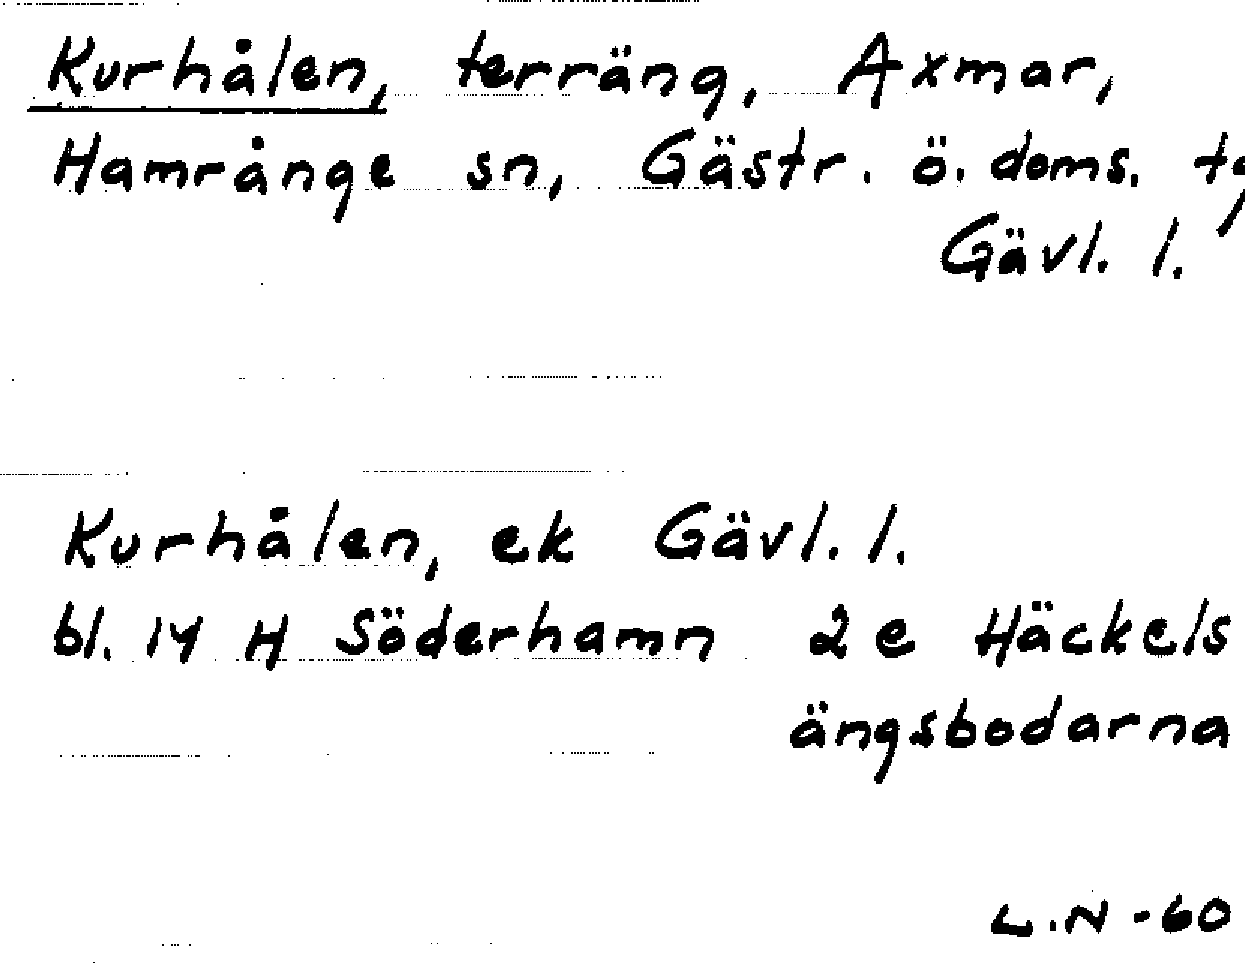 Kurhålen, terräng, Axmar,
Hamrånge sn, Gästr. ö. doms. tg
Gävl. l.
Kurhålen, ek Gävl. l.
bl. 14 H Söderhamn 2 e Häckels
ängsbodarna
L.N -60